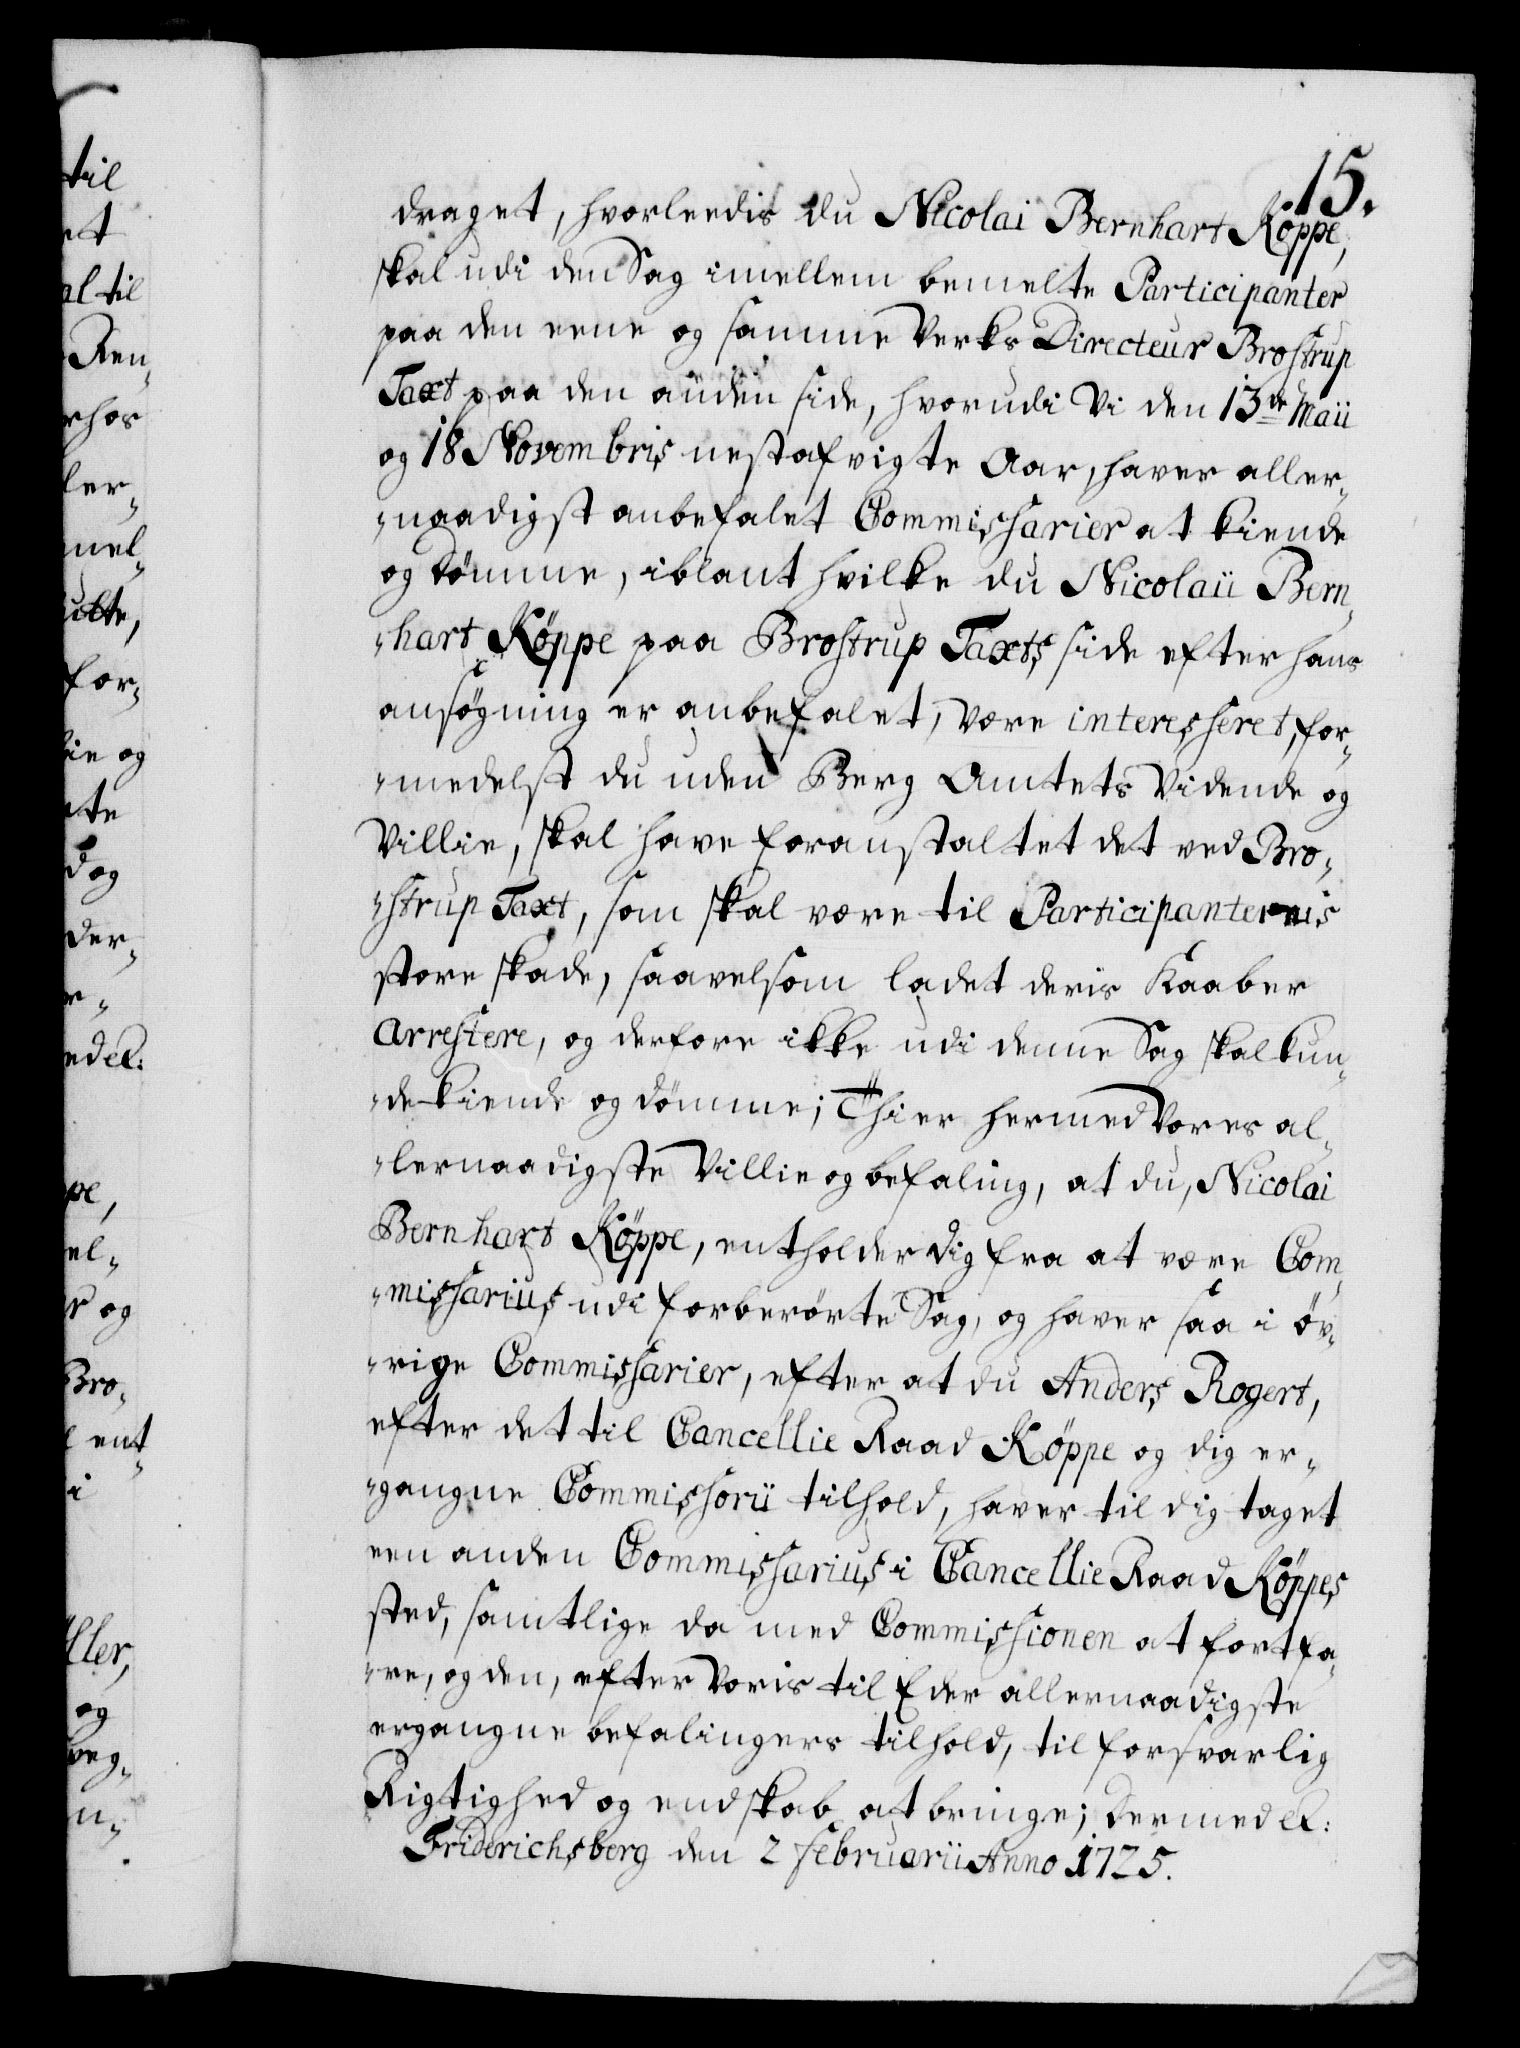 15.
draget, hvorleedis du Nicolai Bernhart Köppe,
skal udi den Sag imellem bemelte Participanter
paa den eene og samme Verks Directeur Brostrup
Taxt paa den anden side, hvorudi Vi den 13de Maii
og 18 Novembris nestafvigte Aar, haver aller-
-naadigst anbefalet Commissarier at kiende
og dömme, iblant hvilke du Nicolaii Bern-
-hart Köppe paa Brostrup Taxts side efter hans
ansögning er anbefalet, være interesseret, for-
-medelst du uden Berg Amtets Vidende og
Villie, skal have foranstaltet det ved Bro-
-strup Taxt, som skal være til Participanternis
store skade, saavelsom ladet deris Kaaber
arrestere, og derfore ikke udi denne Sag skal kun-
-de kiende og dömme; Thi er hermed Vores al-
-lernaadigste Villie og befaling, at du, Nicolai
Bernhart Köppe, entholder dig fra at være Com-
-missarius udi forberörte Sag, og haver saa i öv-
-rige Commissarier, efter at du Anders Rogert,
efter det til Cancellie Raad Köppe og dig er-
-gangne Commissorii tilhold, haver til dig taget
een anden Commissarius i Cancellie Raad Köppes
sted, samtlige da med Commissionen at fortfa-
-re, og den, efter Voris til Eder allernaadigste
ergangne befalingers tilhold, til forsvarlig
Rigtighed og endskab at bringe; Dermed &:
Friderichsberg den 2 Februarii Anno 1725.